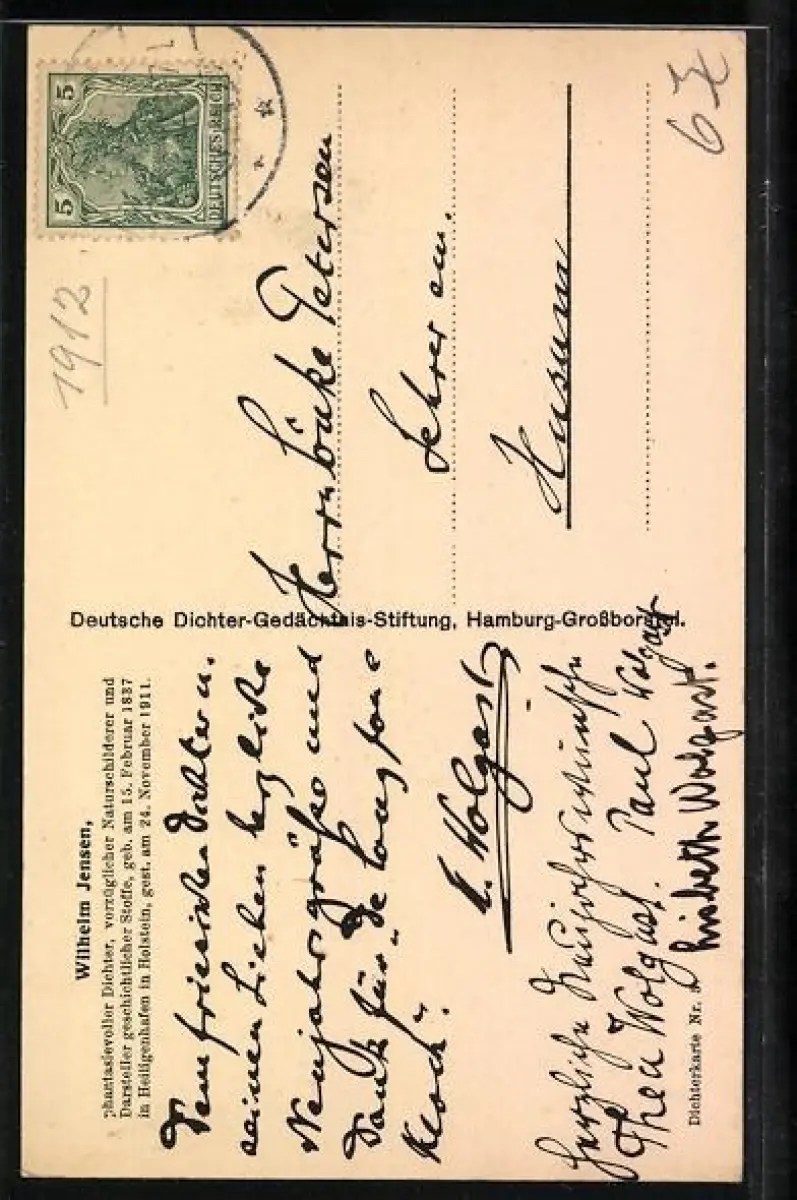 Wilhelm Jensen,
phantasievoller Dichter, vorzüglicher Naturschilderer und
Darsteller geschichtlicher Stoffe, geb. am 15. Februar 1837
in Heiligenhafen in Holstein, gest. am 24. November 1911.
Dem friesischen Dichter u.
seinen Lieben herzliche
Neujahrsgrüße und
Dank für „De
E. Wolgast
Herzliche Neujahrswünsche
Thea Wolgast. Paul Wolgast
Lisbeth Wolgast.
Dichterkarte Nr.
Deutsche Dichter-Gedächtnis-Stiftung, Hamburg-Großborstel.
1912
5 5
DEUTSCHES REICH
Herrn Petersen
Lehrer em.
Husum